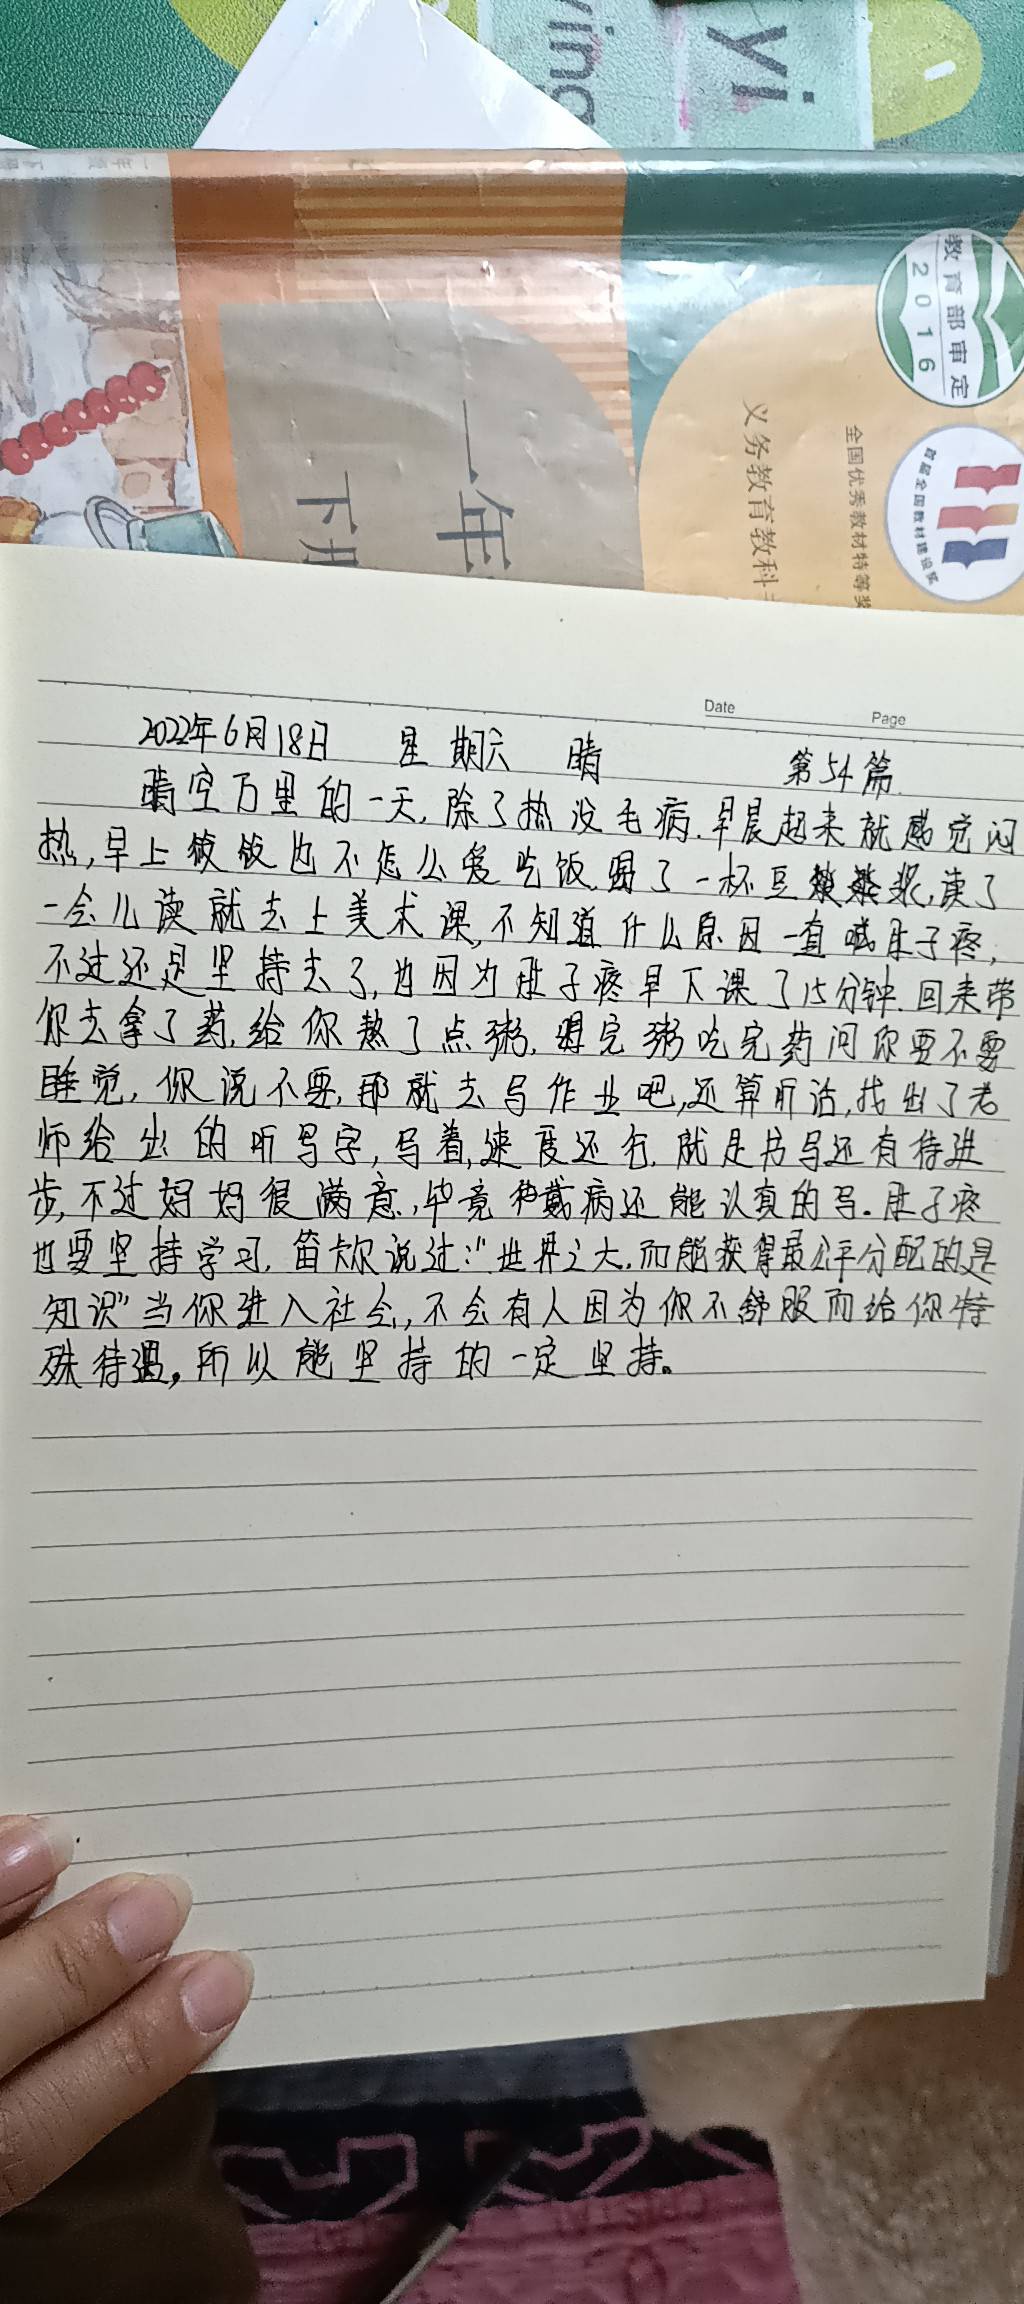 ying
yi
一年级
下册
教育部审定
2016
一年
下册
义务教育教科
全国优秀教材特等奖
首届全国教材建设奖
Date
Page
2022年6月18日 星期六 晴 第54篇
晴空万里的一天,除了热没毛病.早晨起来就感觉闷
热,早上做饭也不怎么爱吃饭.喝了一杯豆浆,读了
一会儿读就去上美术课,不知道什么原因一直喊肚子疼,
不过还是坚持去了,也因为肚子疼早下课了15分钟.回来带
你去拿了药,给你熬了点粥,喝完粥吃完药问你要不要
睡觉,你说不要,那就去写作业吧,还算听话,找出了老
师给出的听写字,写着,速度还行.就是书写还有待进
步,不过妈妈很满意,毕竟戴病还能认真的写.肚子疼
也要坚持学习,笛卡尔说过:"世界之大,而能获得最公平分配的是
知识"当你进入社会,不会有人因为你不舒服而给你特
殊待遇,所以能坚持的一定坚持。